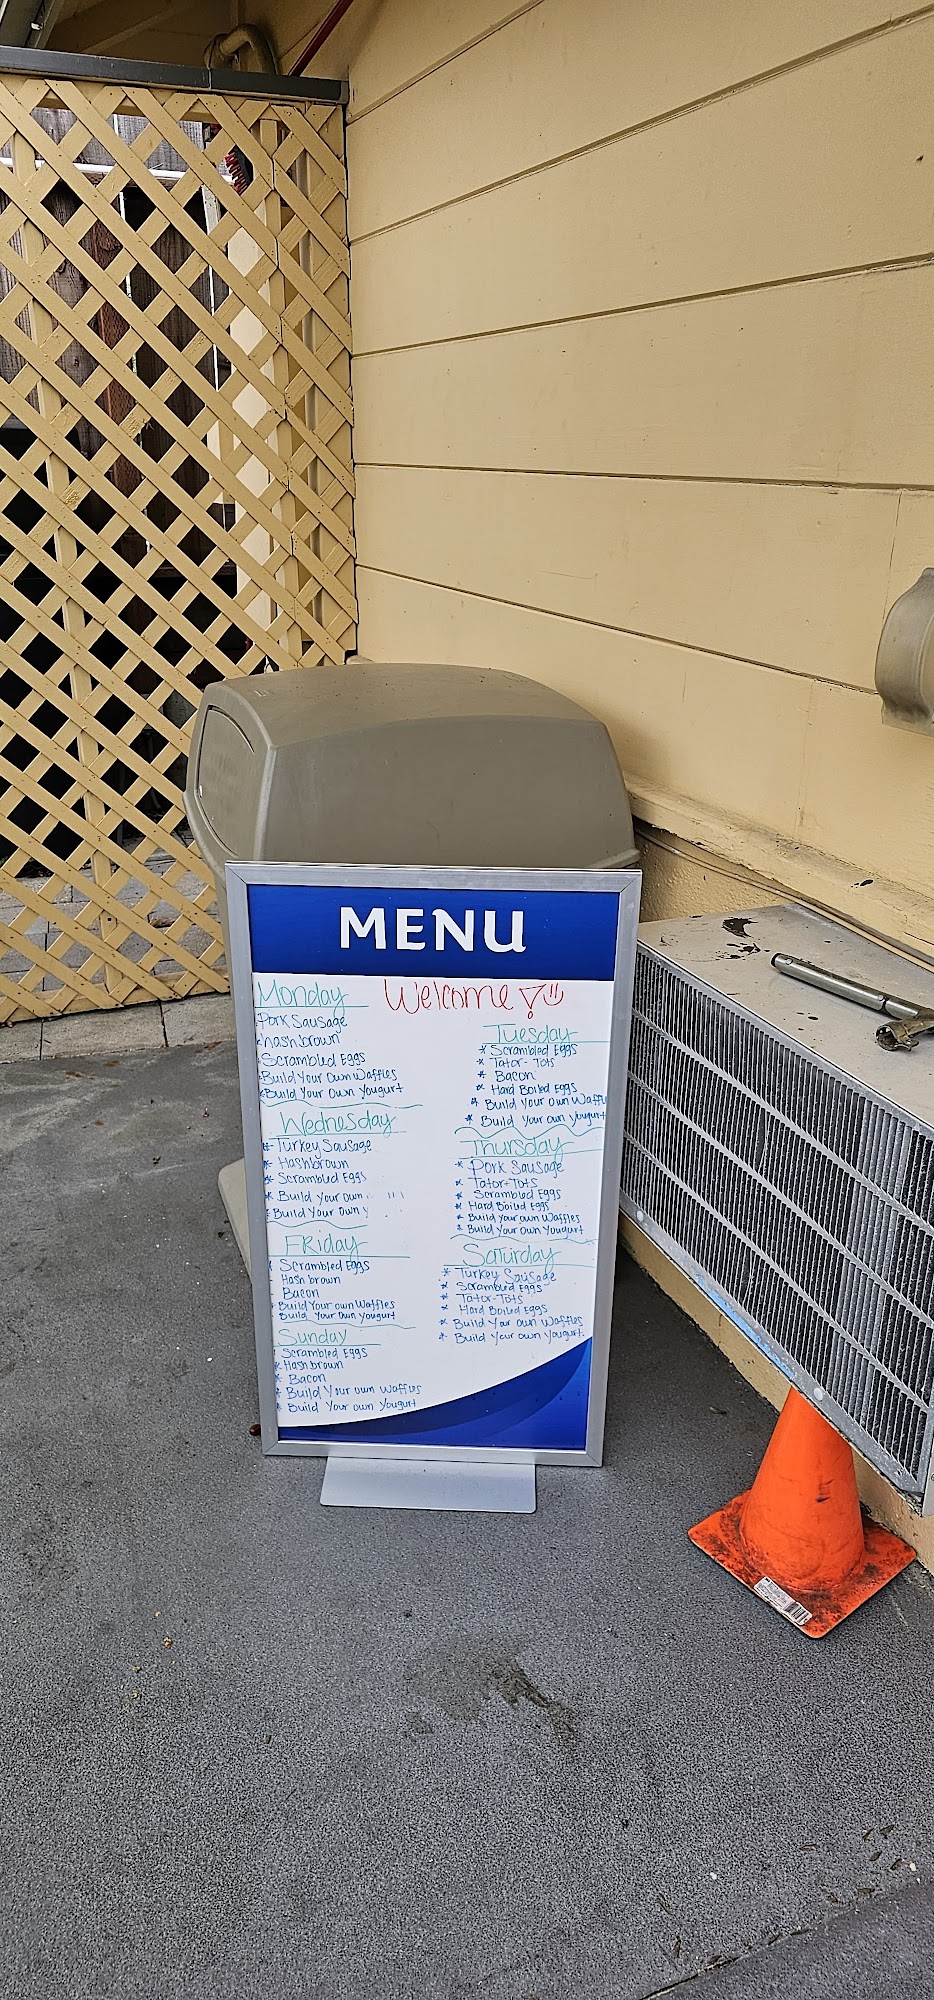 MENU
Welcome
Monday
Pork Sausage
hashbrown
Scrambled Eggs
Build Your Own Waffles
Build Your Own Yougurt
Tuesday
* Scrambled Eggs
* Tator-Tots
* Bacon
* Hard Boiled Eggs
* Build Your Own Waffle
* Build Your own Yougurt
Wednesday
* Turkey Sausage
* Hashbrown
* Scrambled Eggs
* Build Your Own
* Build Your Own Y
Thursday
* Pork Sausage
* Tator-Tots
* Scrambled Eggs
* Hard Boiled Eggs
* Build Your Own Waffles
* Build Your Own Yougurt
FRiday
Scrambled Eggs
Hash brown
Bacon
Build Your own Waffles
Build Your own Yougurt
Saturday
* Turkey Sausage
* Scrambled Eggs
* Tator-Tots
* Hard Boiled Eggs
* Build Your Own Waffles
* Build Your own Yougurt.
Sunday
Scrambled Eggs
* Hashbrown
* Bacon
* Build Your own Waffles
* Build Your own Yougurt